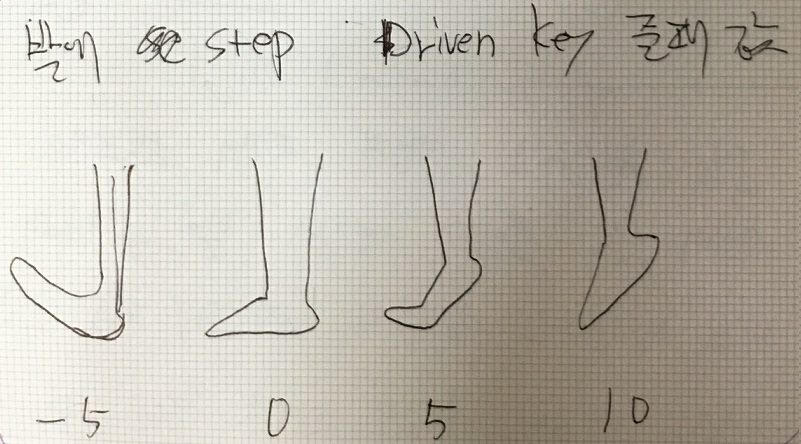 발에 step Driven key 줄때 값
-5 0 5 10